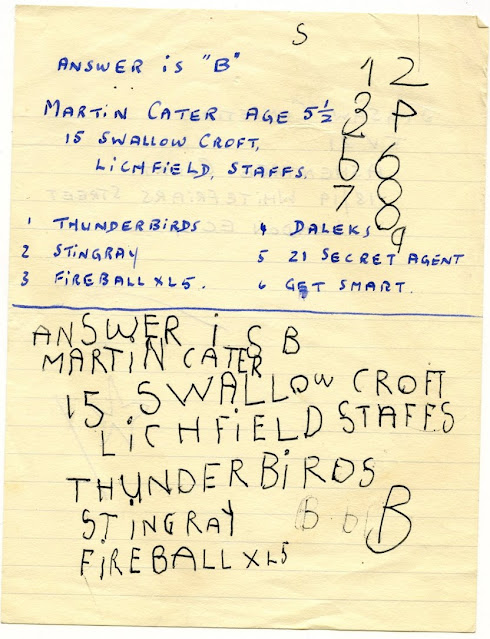 S
ANSWER iS "B"
1 2
MARTiN CATER AGE 5½
3 P
15 SWALLOW CROFT,
5 6
LiCHFiELD, STAFFS.
7 8
1 THUNDERBiRDS
4 DALEKS
9
2 STiNGRAY
5 21 SECRET AGENT
3 FiREBALL XL5.
6 GET SMART.
ANSWER iS B
MARTiN CATER
15 SWALLOW CROFT
LiCHFiELD STAFFS
THUNDERBiRDS
STiNGRAY B B
FiREBALL XL5